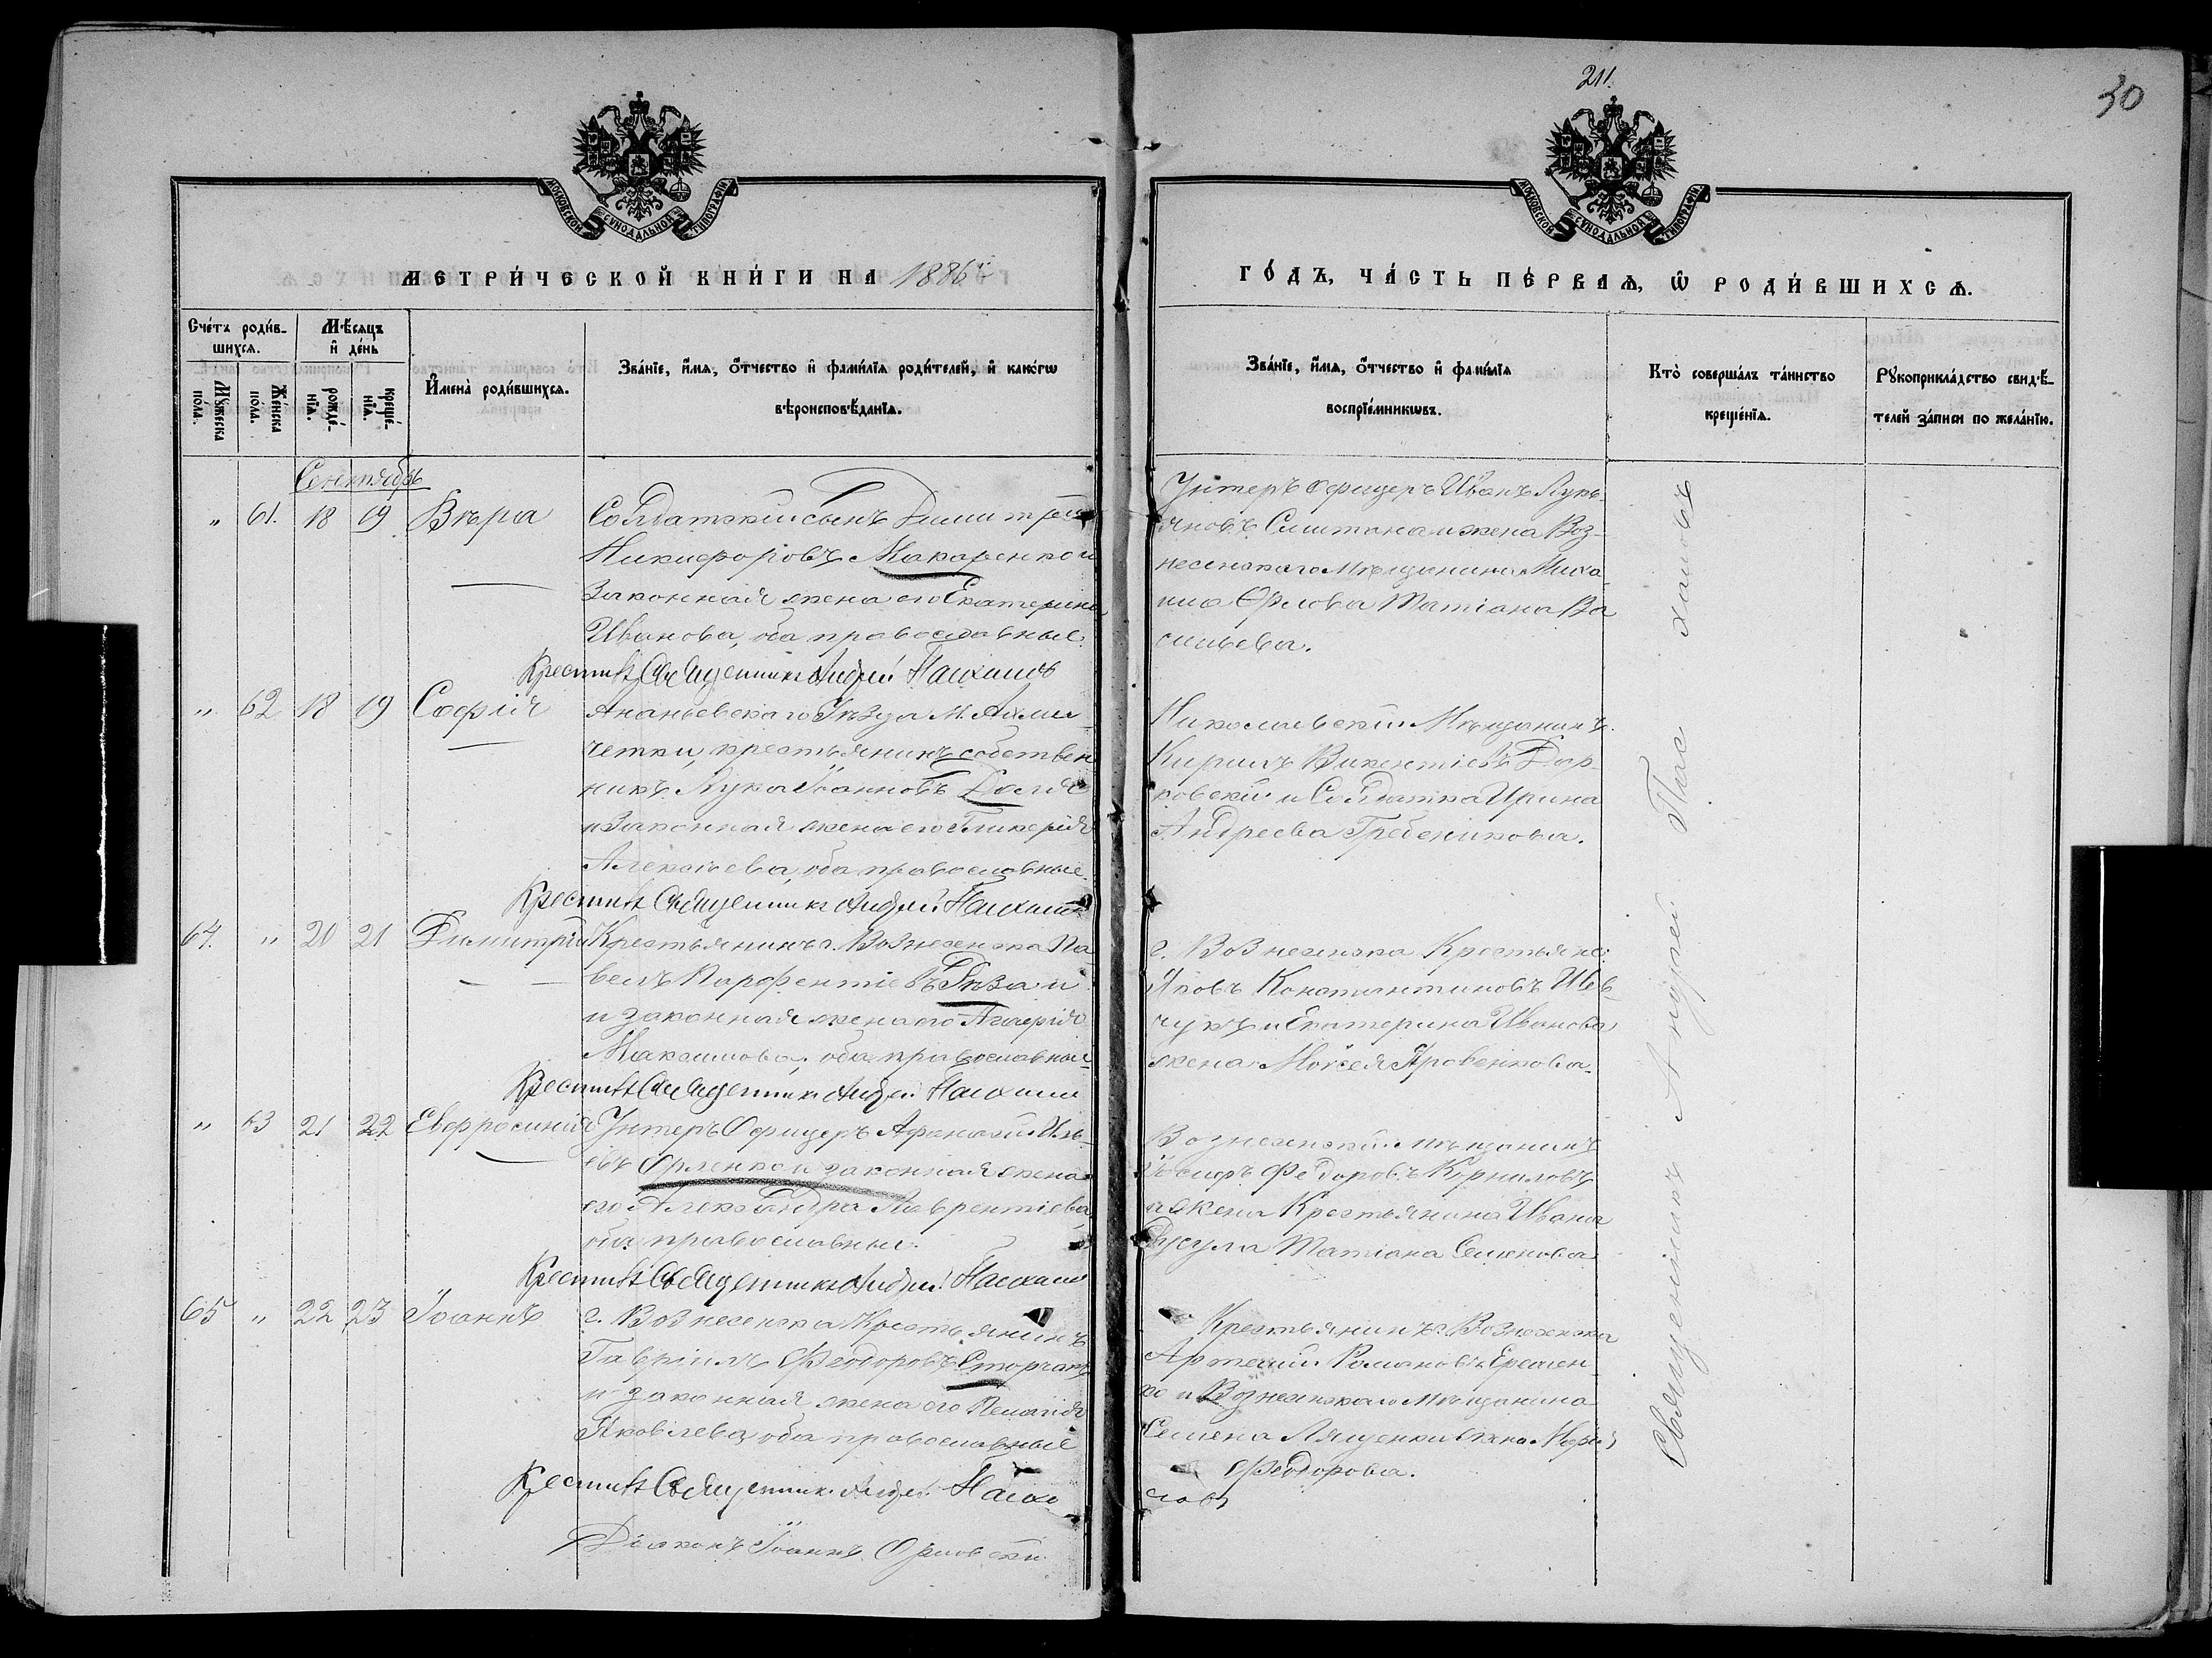 211.
30
МОСКОВСКОЙ СѴНОДАЛЬНОЙ ТИПОГРАФІИ
МОСКОВСКОЙ СѴНОДАЛЬНОЙ ТИПОГРАФІИ
МЕТРИ́ЧЕСКОЙ КНИ́ГИ НА 1886й
ГО́ДЪ, ЧА́СТЬ ПЕ́РВАѦ, Ѡ РОДИ́ВШИХСѦ.
Сче́тъ роди́в-
шихсѧ.
Мѣ́сѧцъ
и де́нь
Мꙋ́жеска по́ла.
Же́нска по́ла.
рожде́-нїѧ.
креще́-нїѧ.
Имена̀ роди́вшихсѧ.
Зва́нїе, и́мѧ, ѻ́тчество и фами́лїѧ роди́телей, и како́гѡ
вѣроисповѣ́данїѧ.
Зва́нїе, и́мѧ, ѻ́тчество и фами́лїѧ
воспрїе́мникѡвъ.
Кто̀ соверша́лъ та́инство
креще́нїѧ.
Рꙋкоприкла́дство свидѣ́-
телей за́писи по жела́нїю.
Сентябрь
" 61. 18 19 Вѣра
Солдатскій сынъ Димитрій
Никифоровъ Макаренко и
законная жена его Екатерина
Иванова, оба православные.
Крестилъ Священникъ Андрей Пасхаловъ
Унтеръ офицеръ Иванъ Лукь-
яновъ Смитана и жена Воз-
несенскаго Мѣщанина Миха-
ила Орлова Татіана Ва
сильева.
" 62 18 19 Софія
Ананьевскаго Уѣзда М. Ахме-
четки, крестьянинъ собствен
никъ Лука Іоанновъ
и законная жена его Гликерія
Алексѣева, оба православные.
Крестилъ Священникъ Андрей
Николаевскій Мѣщанинъ
Кирилъ Викентіевъ Дар-
ковскій и Солдатка Ирина
Андреева Гребеникова.
64. " 20 21 Димитрій
Крестьянинъ г. Вознесенска Па-
велъ Парфентіевъ
и законная жена его
Максимова, оба православные
Крестилъ Священникъ Андрей
г. Вознесенска Крестьяне:
Яковъ Константиновъ Шев-
чукъ и Екатерина Иванова
жена Моисея Яровенкова.
" 63 21 22 Евфросинія
Унтеръ Офицеръ Афанасій Иль-
евъ Орленко и законная жена
его Александра Лаврентіева,
оба православные.
Крестилъ Священникъ Андрей
Вознесенскій мѣщанинъ
Іосифъ Федоровъ Корниловъ
и жена Крестьянина Ивана
Татіана Семенова
65 " 22 23 Іоаннъ
г. Вознесенска Крестьянинъ
Гавріилъ Феодоровъ
и законная жена его Пелагія
Яковлева, оба православные
Крестилъ Священникъ Андрей
Діаконъ Іоаннъ Орловскій
Крестьянинъ г. Вознесенска
Артемій Романовъ Еремен
ко и Вознесенскаго мѣщанина
Семена Лященки жена Марія
Феодорова.
Священникъ Андрей